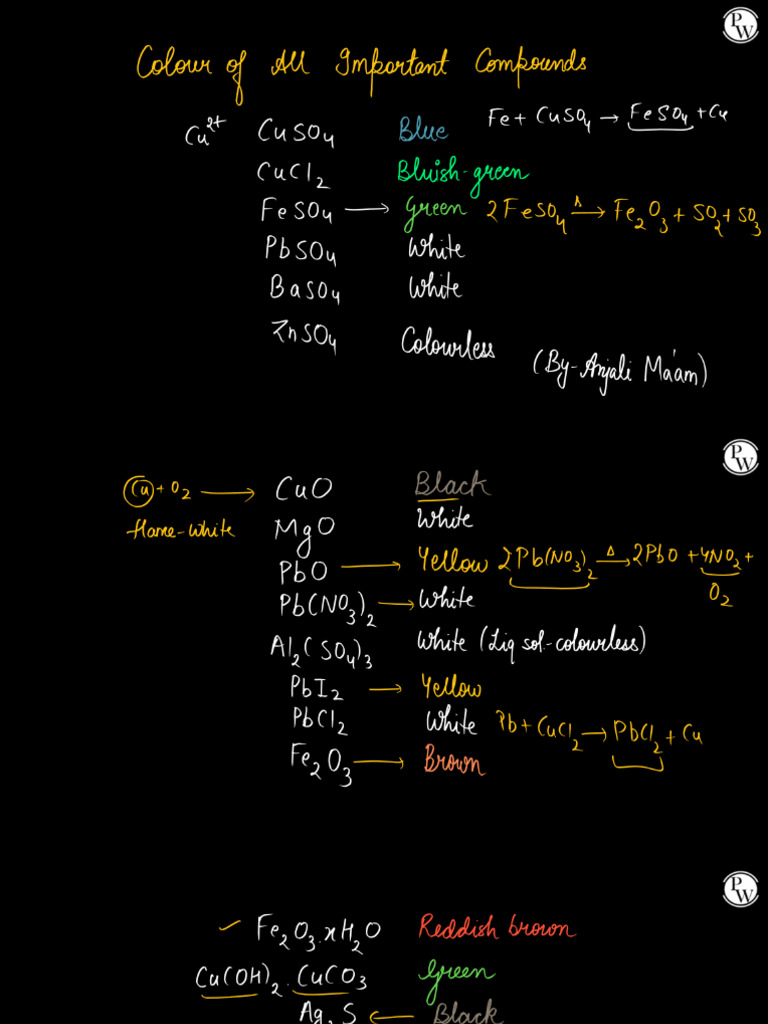 PW
Colour of All Important Compounds
Cu²⁺ CuSO₄ Blue Fe + CuSO₄ → FeSO₄ + Cu
CuCl₂ Bluish-green
FeSO₄ → Green 2FeSO₄ Δ→ Fe₂O₃ + SO₂ + SO₃
PbSO₄ White
BaSO₄ White
ZnSO₄ Colourless
(By-Anjali Ma'am)
PW
Cu + O₂ → CuO Black
flame-White MgO White
PbO → Yellow 2Pb(NO₃)₂ Δ→ 2PbO + 4NO₂ + O₂
Pb(NO₃)₂ → White
Al₂(SO₄)₃ White (Liq sol-colourless)
PbI₂ → Yellow
PbCl₂ White Pb + CuCl₂ → PbCl₂ + Cu
Fe₂O₃ → Brown
PW
Fe₂O₃.xH₂O Reddish brown
Cu(OH)₂.CuCO₃ Green
Ag₂S ← Black